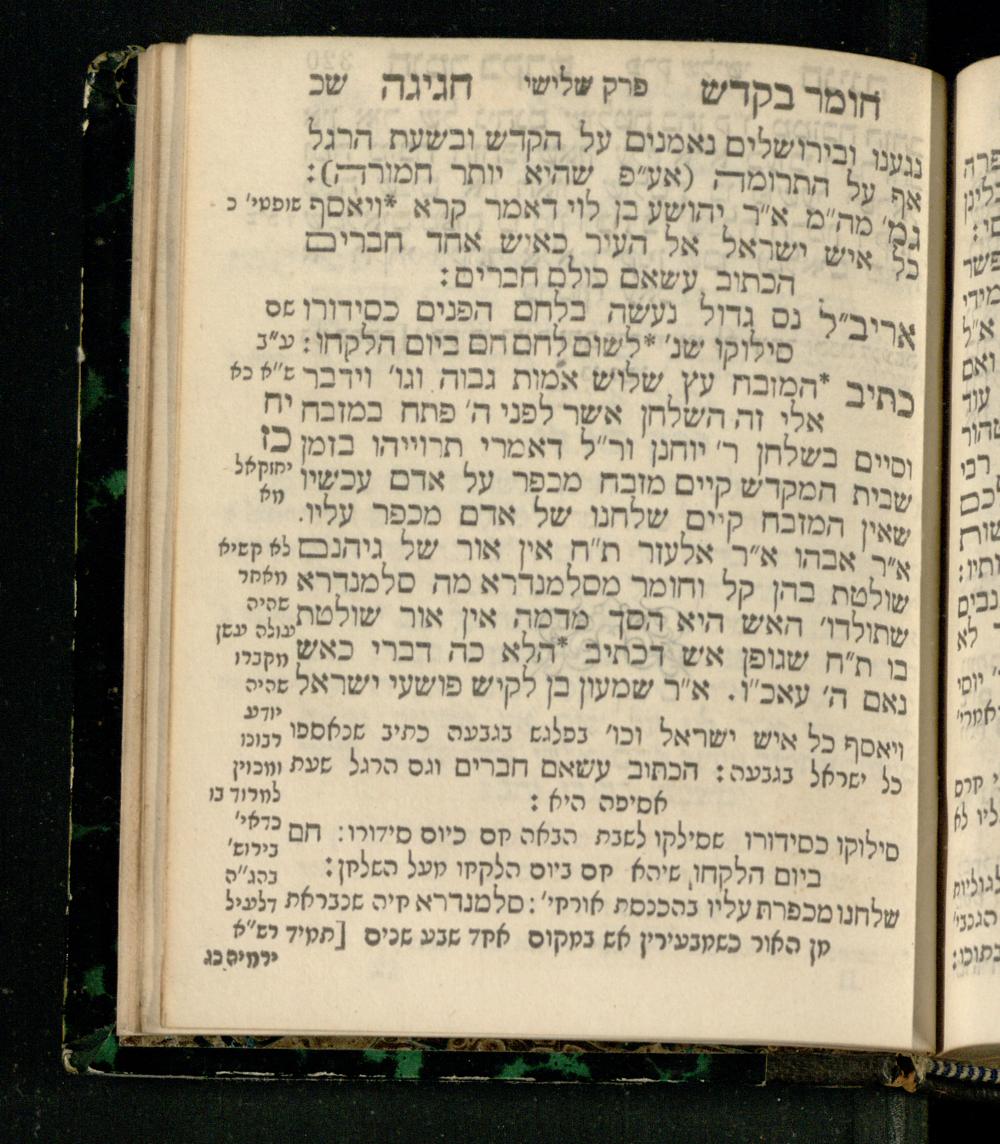 חומר בקדש פרק שלישי חגיגה שכ
נגענו ובירושלים נאמנים על הקדש ובשעת הרגל
אף על התרומה (אע״פ שהיא יותר חמורה):
גמ׳ מה״מ א״ר יהושע בן לוי דאמר קרא *ויאסף
כל איש ישראל אל העיר כאיש אחד חברים
הכתוב עשאם כולם חברים:
אריב״ל נס גדול נעשה בלחם הפנים כסידורו
סילוקו שנ׳ *לשום לחם חם ביום הלקחו:
כתיב *המזבח עץ שלוש אמות גבוה וגו׳ וידבר
אלי זה השלחן אשר לפני ה׳ פתח במזבח
וסיים בשלחן ר׳ יוחנן ור״ל דאמרי תרוייהו בזמן
שבית המקדש קיים מזבח מכפר על אדם עכשיו
שאין המזבח קיים שלחנו של אדם מכפר עליו.
א״ר אבהו א״ר אלעזר ת״ח אין אור של גיהנם
שולטת בהן קל וחומר מסלמנדרא מה סלמנדרא
שתולדו׳ האש היא הסך מדמה אין אור שולטת
בו ת״ח שגופן אש דכתיב *הלא כה דברי כאש
נאם ה׳ עאכ״ו. א״ר שמעון בן לקיש פושעי ישראל
ויאסף כל איש ישראל וכו׳ בפלגש בגבעה כתיב שנאספו
כל ישראל בגבעה: הכתוב עשאם חברים וגם הרגל שעת
אסיפה היא:
סילוקו כסידורו שסילקו לשבת הבאה חם כיום סידורו: חם
ביום הלקחו, שיהא חם ביום הלקחו מעל השלחן:
שלחנו מכפרת עליו בהכנסת אורחי׳: סלמנדרא חיה שנבראת
מן האור כשמבעירין אש במקום אחד שבע שנים [תמיד
שופטי׳ כ
שם
ע״ב
ש״א כא
יח
כז
יחזקאל
מא
לא קשיא
מאחר
שהיה
עולה עשן
מקברו
שהיה
יודע
רבונו
ומכוין
למרוד בו
כדאי׳
בירוש׳
בהג״ה
דלעיל
רש״א
ירמיה כג